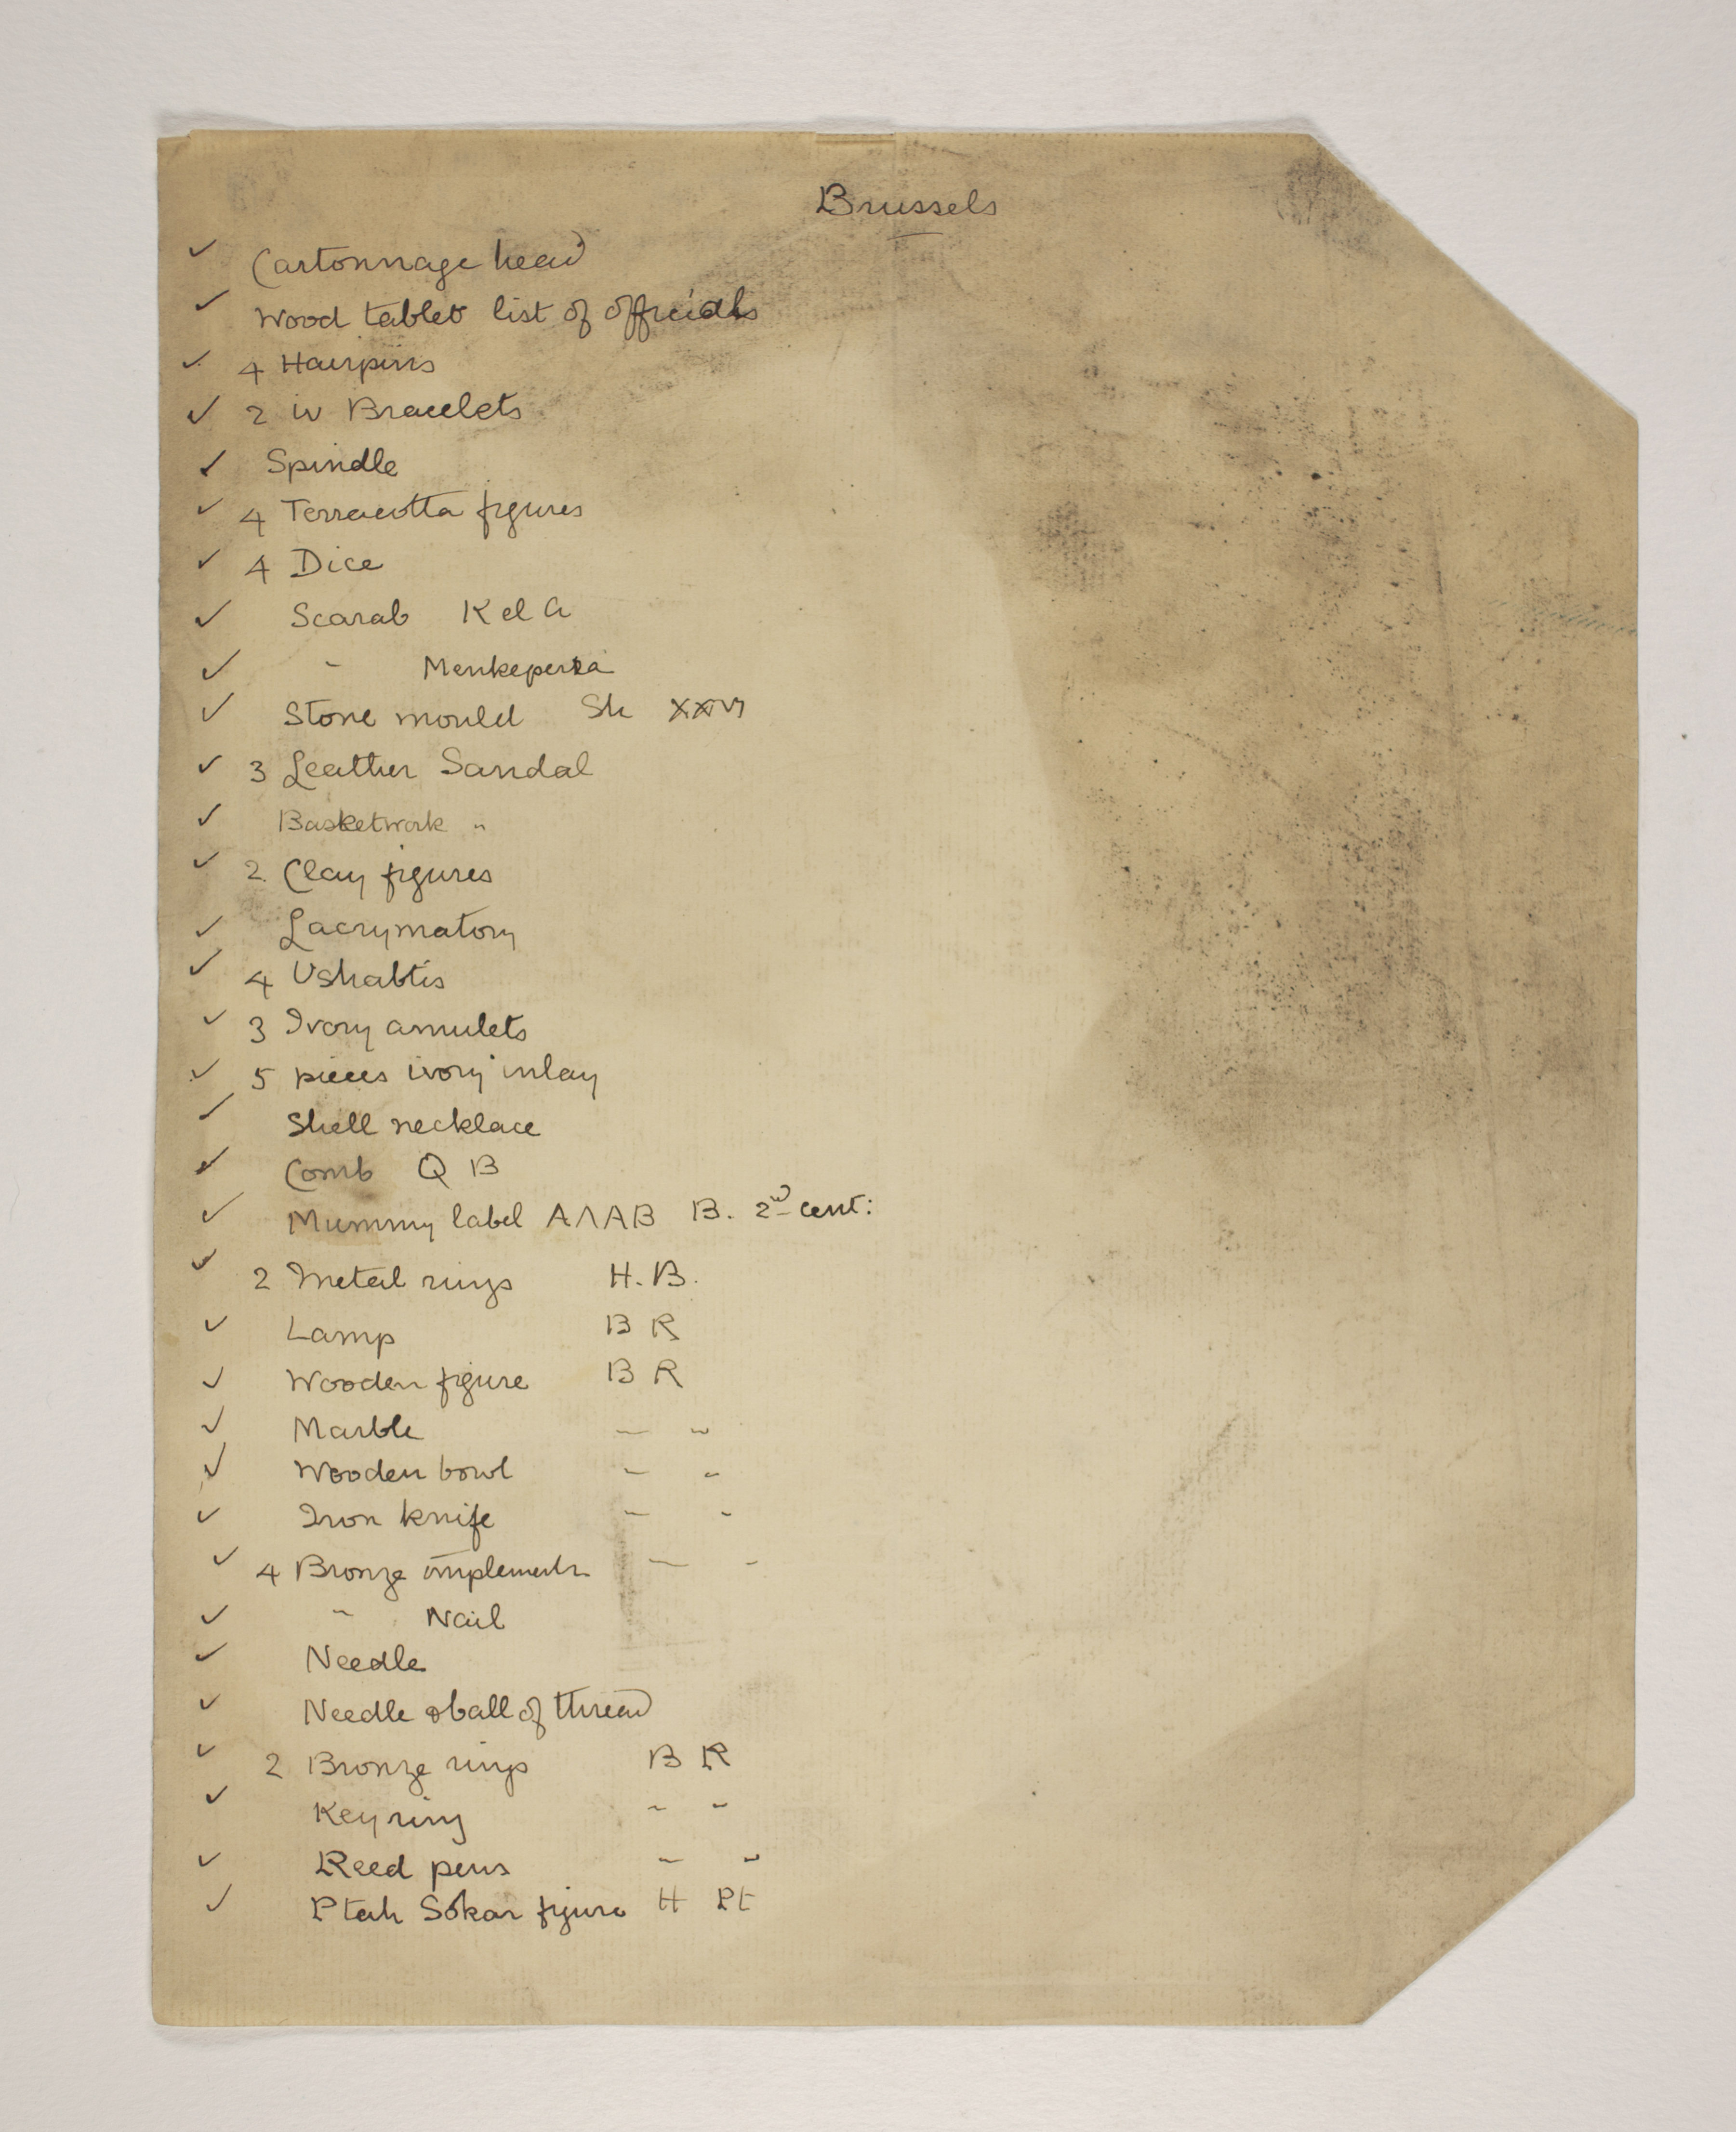 Brussels
✓ Cartonnage head
✓ Wood tablet list of officials
✓ 4 Hairpins
✓ 2 iv Bracelets
✓ Spindle
✓ 4 Terracotta figures
✓ 4 Dice
✓ Scarab Kel A
✓ " Menkeperra
✓ Stone mould Sh XXVI
✓ 3 Leather Sandal
✓ Basketwork "
✓ 2 Clay figures
✓ Lacrymatory
✓ 4 Ushabtis
✓ 3 Ivory amulets
✓ 5 pieces ivory inlay
✓ Shell necklace
✓ Comb Q B
✓ Mummy label AΛAB B. 2nd cent:
✓ 2 Metal rings H. B.
✓ Lamp B R
✓ Wooden figure B R
✓ Marble " "
✓ Wooden bowl " "
✓ Iron knife " "
✓ 4 Bronze implements " "
✓ " Nail
✓ Needle
✓ Needle & ball of thread
✓ 2 Bronze rings B R
✓ Key ring " "
✓ Reed pens " "
✓ Ptah Sokar figure H Pt